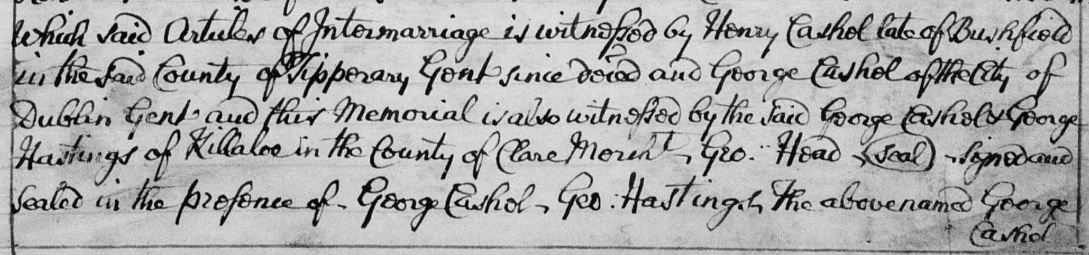 which said Articles of Intermarriage is witnessed by Henry Cashol late of Bushfield
in the said County of Tipperary Gent since deced and George Cashol of the City of
Dublin Gent and this Memorial is also witnessed by the said George Cashol & George
Hastings of Killaloe in the County of Clare Mercht, Geo: Head (seal) signed and
sealed in the presence of George Cashol, Geo: Hastings, The abovenamed George
Cashol